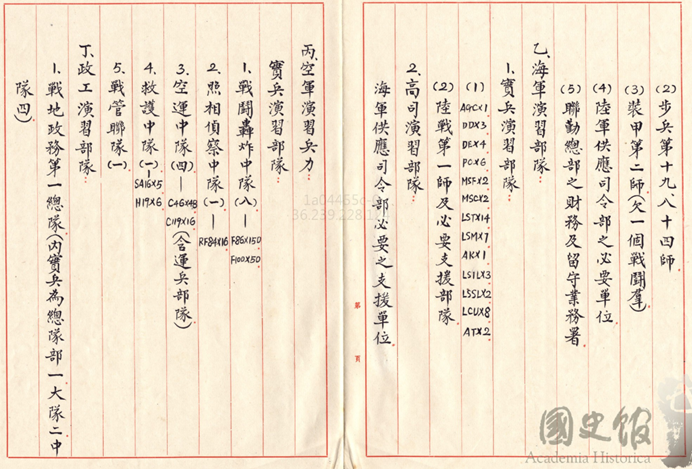 (2) 步兵第十九、八十四師
(3) 裝甲第二師(欠一個戰鬪羣)
(4) 陸軍供應司令部之必要單位
(5) 聯勤總部之財務及留守業務署
乙、海軍演習部隊:
1、實兵演習部隊:
(1)
AGCX1
DDX3
DEX4
PCX6
MSFX2
MSCX2
LSTX14
LSMX7
AKX1
LSILX3
LSSLX2
LCUX8
ATX2
(2) 陸戰第一師及必要支援部隊
2、高司演習部隊:
海軍供應司令部必要之支援單位
第 頁
丙、空軍演習兵力
實兵演習部隊:
1、戰鬪轟炸中隊(八)—
F86X150
F100X50
2、照相偵察中隊(一)—RF84X16
3、空運中隊(四)—
C46X48
C119X16
(含運兵部隊)
4、救護中隊(一)—
SA16X5
H19X6
5、戰管聯隊(一)
丁、政工演習部隊:
1、戰地政務第一總隊(內實兵為總隊部一大隊二中
隊四)
國史館
Academia Historica